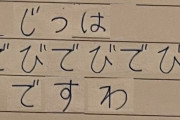 じつは
どびでびでび
ですわ